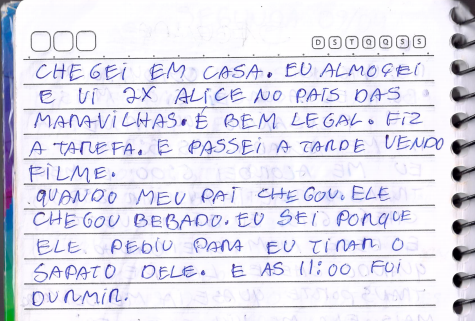 D S T Q Q S S
CHEGEI EM CASA. EU ALMOCEI
E VI 2X ALICE NO PAIS DAS
MARAVILHAS. E BEM LEGAL. FIZ
A TAREFA. E PASSEI A TARDE VENDO
FILME.
QUANDO MEU PAI CHEGOU. ELE
CHEGOU BEBADO. EU SEI PORQUE
ELE PEDIU PARA EU TIRAR O
SAPATO DELE. E AS 11:00 FUI
DURMIR.